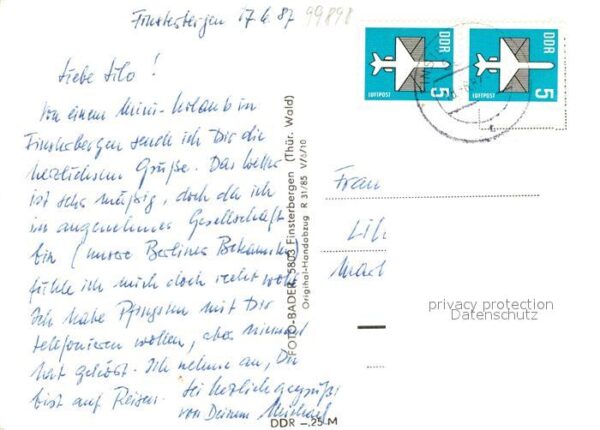 Finsterbergen 17.6.87
99898
Liebe Lilo!
Von einem Mini-Urlaub in
Finsterbergen sende ich Dir die
herzlichsten Grüße. Das Wetter
ist sehr mäßig, doch da ich
in angenehmer Gesellschaft
bin (unsere Berliner Bekannten)
fühle ich mich doch recht wohl.
Ich habe Pfingsten mit Dir
telefonieren wollen, aber niemand
hat gehört. Ich nehme an, Du
bist auf Reisen. Sei herzlich gegrüßt
von Deinem Michael
FOTO-BADER, 5803 Finsterbergen (Thür. Wald)
Original-Handabzug R 31/85 V/6/10
DDR -,25 M
DDR
LUFTPOST
5
DDR
LUFTPOST
5
Frau
privacy protection
Datenschutz